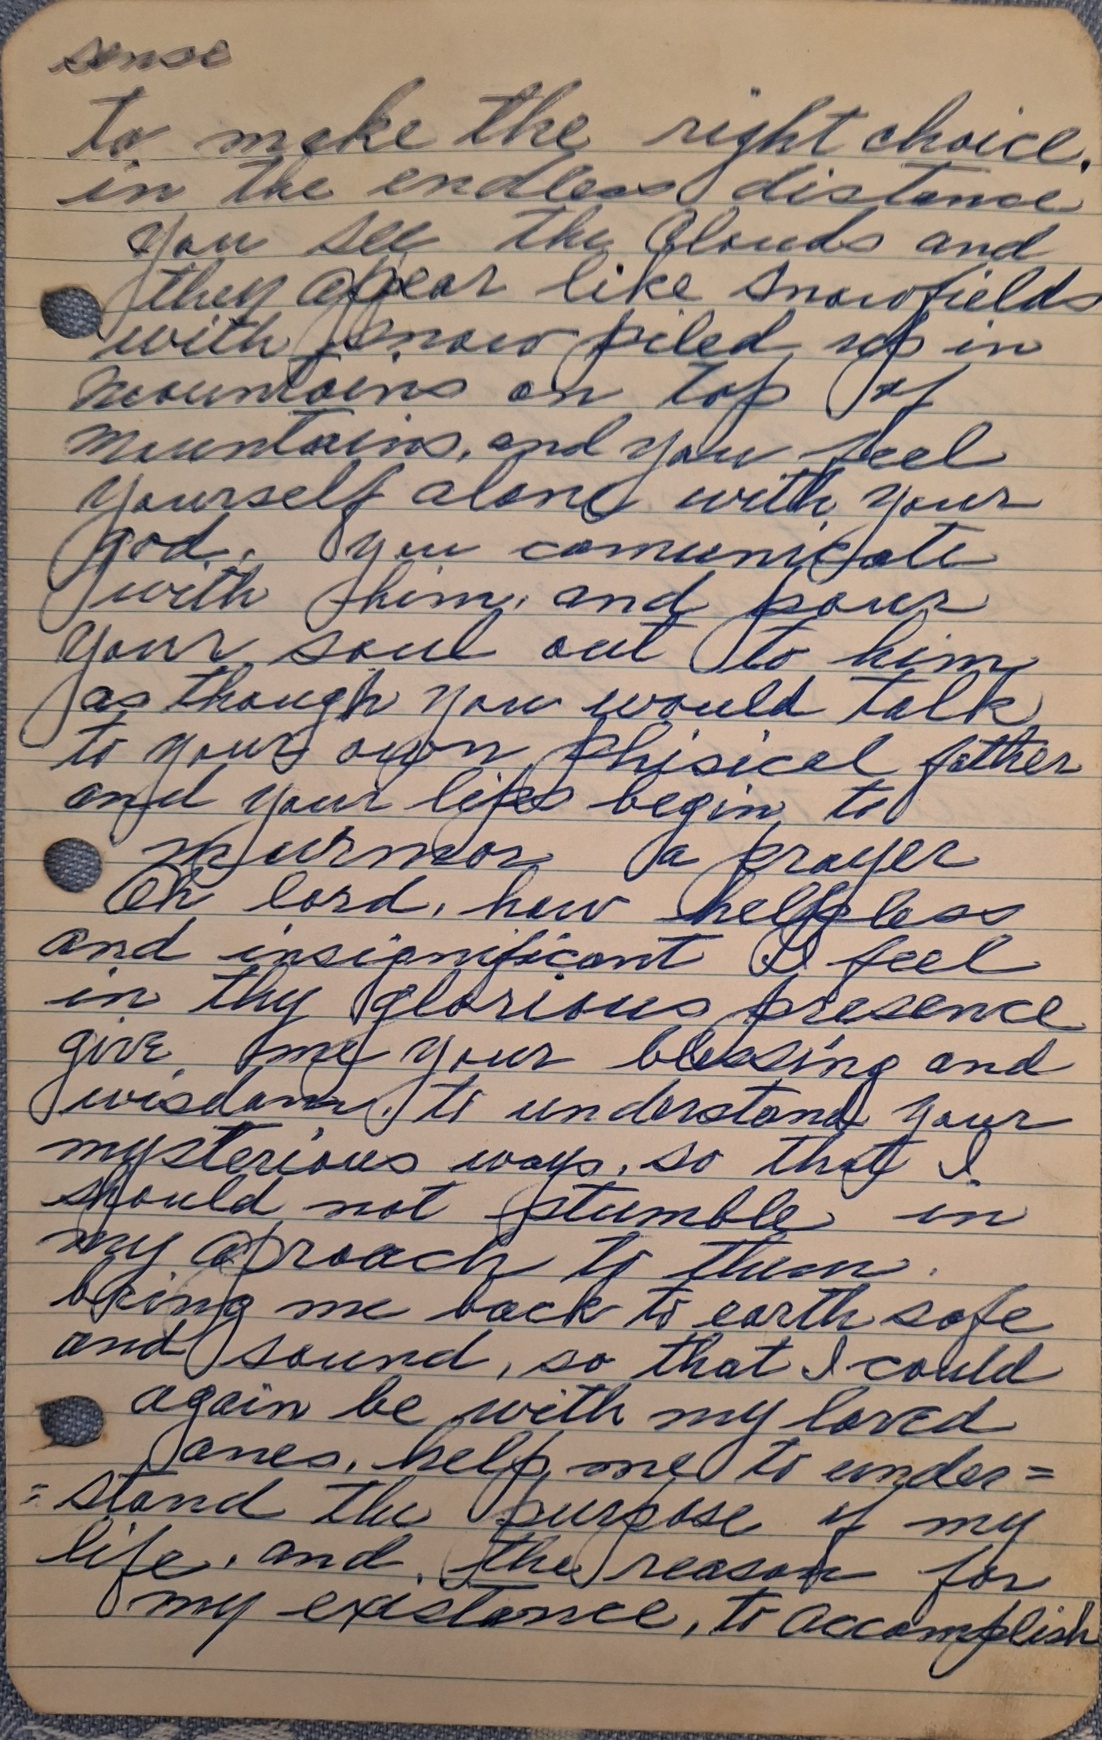 sense
to make the right choice.
in the endless distance
you see the clouds and
they apear like snowfields
with snow piled up in
mountains on top of
mountains, and you feel
yourself alone with your
god. you comunicate
with him, and pour
your soul out to him
as though you would talk
to your own phisical father
and your lips begin to
murmor a prayer
Oh lord, how helpless
and insignificant I feel
in thy glorious presence
give me your blessing and
wisdom, to understand your
mysterious ways, so that I
should not stumble in
my aproach to them.
bring me back to earth safe
and sound, so that I could
again be with my loved
ones, help me to under=
=stand the purpose of my
life, and the reason for
my existance, to accomplish